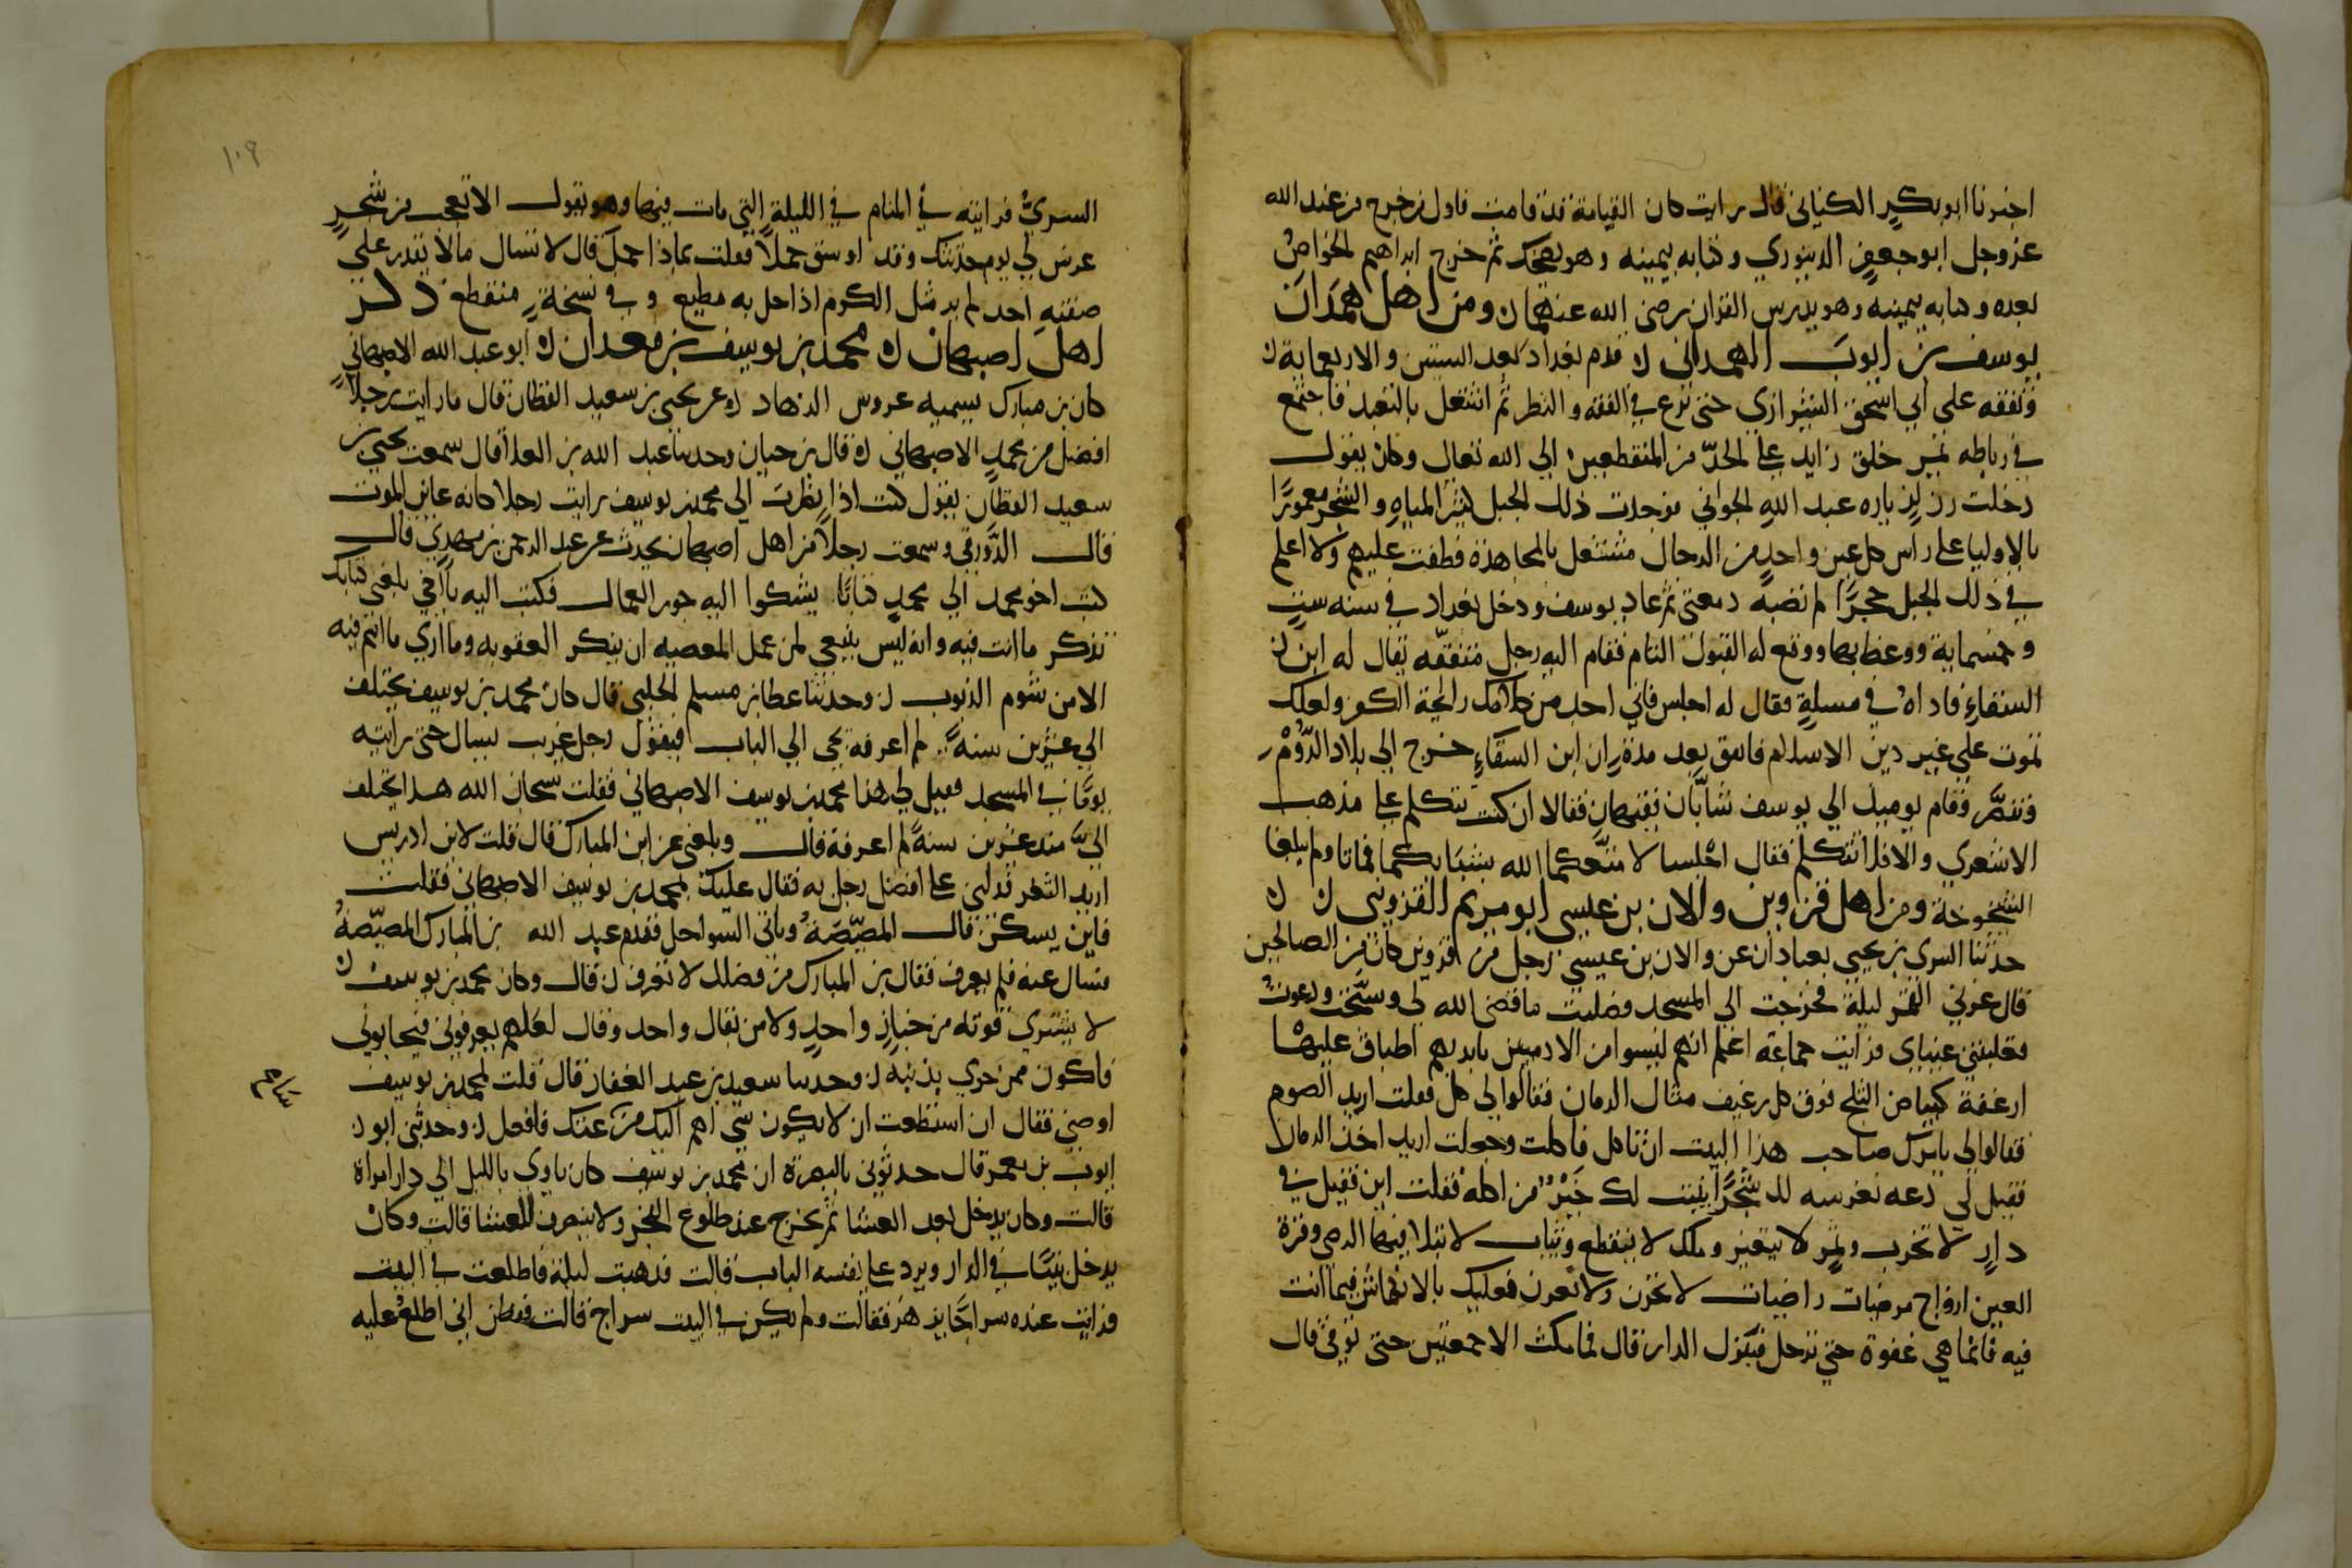 اخبرنا ابو بكر الكناني قال رايت كان القيامة قد قامت فاول من خرج من عند الله
عز وجل ابو جعفر الدينوري وكتابه بيمينه وهو يضحك ثم خرج ابراهيم الخواص
بعده وكتابه بيمينه وهو يدرس القران رضي الله عنهما ومن اهل همدان
يوسف بن ايوب الهمداني قدم بغداد بعد الستين والاربعماية
وتفقه على ابي اسحق الشيرازي حتى برع في الفقه والنظر ثم اشتغل بالتعبد فاجتمع
في رباطه بمرو خلق زايد على الحد من المنقطعين الي الله تعالى وكان يقول
دخلت جبل زيارة عبد الله الجواني فوجدت ذلك الجبل كثير المياه والشجر معمورا
بالاوليا على راس كل عين واحد من الرجال مشتغل بالمجاهدة فطفت عليهم ولا اعلم
في ذلك الجبل حجرا لم تصبه دمعتي ثم عاد يوسف ودخل بغداد في سنه ست
وخمسماية ووعظ بها ووقع له القبول التام فقام اليه رجل متفقه يقال له ابن
السقاء فاذاه في مسلة فقال له اجلس فاني اجد من كلامك رايحة الكفر ولعلك
تموت على غير دين الاسلام فاتفق بعد مدة ان ابن السقاء خرج الي بلاد الروم
وتنصر وقام يوميذ الي يوسف شابان فقيهان فقالا ان كنت تتكلم على مذهب
الاشعري والا فلا تتكلم فقال اجلسا لا متعكما الله بشبابكما فماتا ولم يبلغا
الشيخوخة ومن اهل قزوين والان بن عيسى ابو مريم القزويني
حدثنا السري بن يحيى بعبادان عن والان بن عيسى رجل من قزوين كان من الصالحين
قال غرني القمر ليلة فخرجت الي المسجد فصليت ما قضى الله لي وسبحت ودعوت
فغلبتني عيناي فرايت جماعة اعلم انهم ليسوا من الادميين بايديهم اطباق عليها
ارغفة كبياض الثلج فوق كل رغيف مثال الرمان فقالوا لي كل فقلت اريد الصوم
فقالوا لي يامرك صاحب هذا البيت ان تاكل فاكلت وجعلت اريد اخذ الرمان
فقيل لي دعه نغرسه لك شجرا ينبت لك خير من اكله فقلت اين فقيل في
دار لا تخرب وثمر لا يتغير وملك لا ينقطع وثياب لا تبلا فيها الرضي وقرة
العين ارواح مرضيات راضيات لا تحزن ولا تعرن فعليك بالانكماش فيما انت
فيه فانما هي غفوة حتى ترحل فتنزل الدار قال فما مكث الا جمعتين حتى توفي قال
١٠٩
السري فرايته في المنام في الليلة التي مات فيها وهو يقول الا تعجب من شجر
غرس لي يوم حدثتك وقد اوسق حملا فقلت بماذا حمل قال لا تسال مالا يقدر على
صفته احد لم ير مثل الكرم اذا حل به مطيع وفي نسخة منقطع ذكر
اهل اصبهان محمد بن يوسف بن معدان ابو عبد الله الاصبهاني
كان بن مبارك يسميه عروس الزهاد عن يحيى بن سعيد القطان قال ما رايت رجلا
افضل من محمد الاصبهاني قال بن حيان وحدثنا عبد الله بن العلا قال سمعت يحيى بن
سعيد القطان يقول كنت اذا نظرت الى محمد بن يوسف رايت رجلا كانه عاين الموت
قال الدورقي وسمعت رجلا من اهل اصبهان يحدث عن عبد الرحمن بن مهدي قال
كتب اخو محمد الي محمد كتابا يشكوا اليه جور العمال فكتب اليه يا اخي بلغني كتابك
تذكر ما انت فيه وانه ليس ينبغي لمن عمل المعصيه ان ينكر العقوبه وما اري ما انتم فيه
الا من شوم الذنوب وحدثنا عطا بن مسلم الحلبي قال كان محمد بن يوسف يختلف
الي عشرين سنة لم اعرفه يجي الي الباب فيقول رجل غريب يسال حتى رايته
يوما في المسجد فقيل لي هذا محمد بن يوسف الاصبهاني فقلت سبحان الله هذا يختلف
الي منذ عشرين سنة لم اعرفه قال وبلغني عن ابن المبارك قال قلت لابن ادريس
اريد الثغر فدلني على افضل رجل به فقال عليك بمحمد بن يوسف الاصبهاني فقلت
فاين يسكن قال المصيصة وياتي السواحل فقدم عبد الله بن المبارك المصيصة
فسال عنه فلم يعرف فقال بن المبارك من فضلك لا تعرف قال وكان محمد بن يوسف
لا يشتري قوته من خباز واحد ولا من بقال واحد وقال لعلهم يعرفوني فيحابوني
فاكون ممن حري بدينه وحدثنا سعيد بن عبد الغفار قال قلت لمحمد بن يوسف
اوصني فقال ان استطعت ان لا يكون شي اهم اليك من عتك فافعل وحدثني ابو
ايوب بن معمر قال حدثوني بالبصرة ان محمد بن يوسف كان ياوي بالليل الي دار امراة
قالت وكان يدخل بعد العشا ثم يخرج عند طلوع الفجر ولا ينصرف للعشا قالت وكان
يدخل بيتا في الدار ويرد على نفسه الباب قالت فذهبت ليلة فاطلعت في البيت
فرايت عنده سراجا يزهر فقالت ولم يكن في البيت سراج قالت ففطن اني اطلع عليه